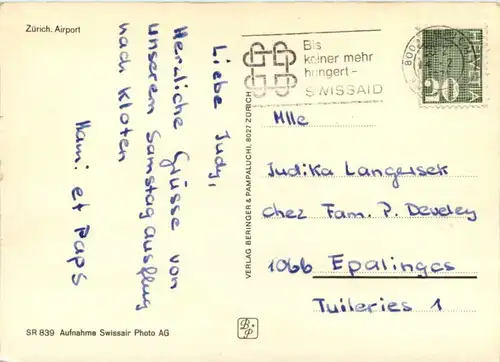 Zürich. Airport
Liebe Judy,
Herzliche Grüsse von
unserem Samstagausflug
nach Kloten
Mami et Paps
SR 839 Aufnahme Swissair Photo AG
VERLAG BERINGER & PAMPALUCHI, 8027 ZÜRICH
B P
Bis
keiner mehr
hungert-
SWISSAID
HELVETIA
20
Mlle
Judika Langersek
chez Fam. P. Develey
1066 Epalinges
Tuileries 1